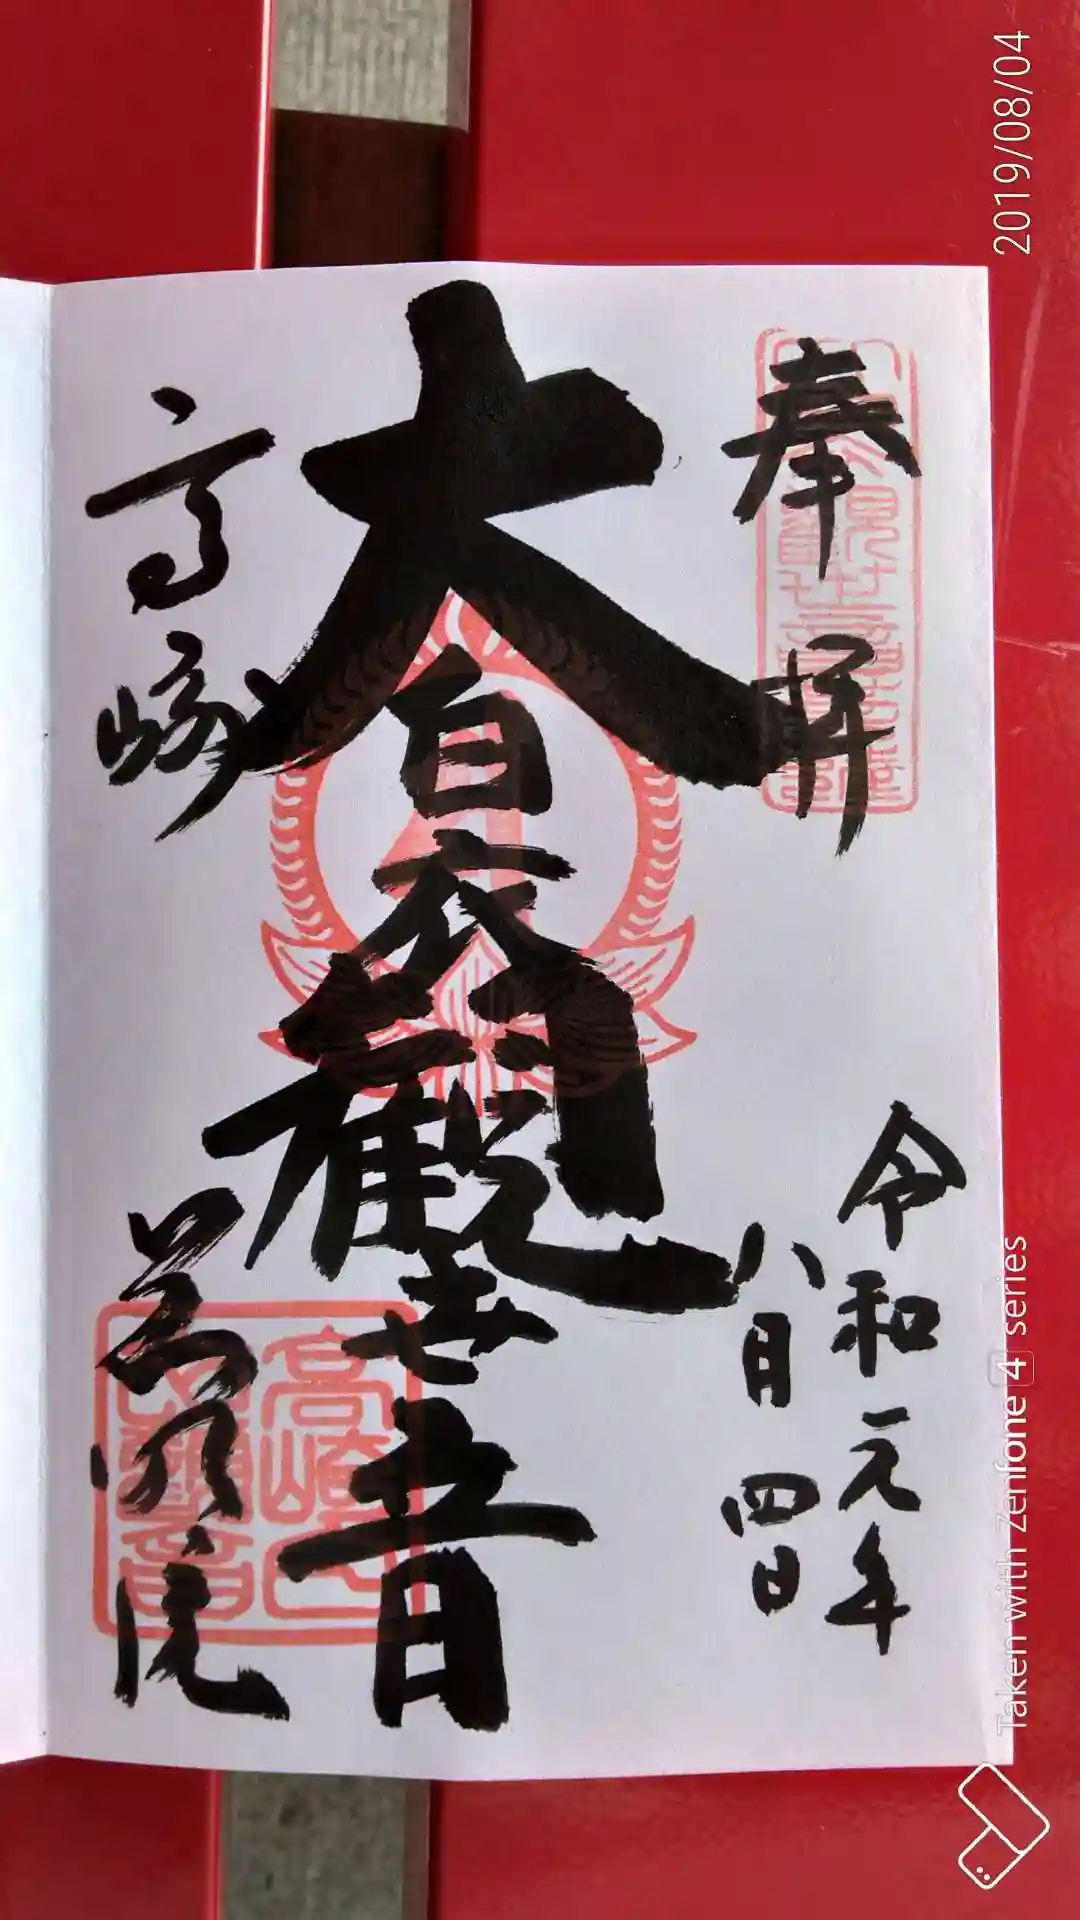 奉拝
令和元年
八月四日
大白衣觀世音
高崎
慈眼院
高崎白衣観音
2019/08/04
Taken with Zenfone 4 series